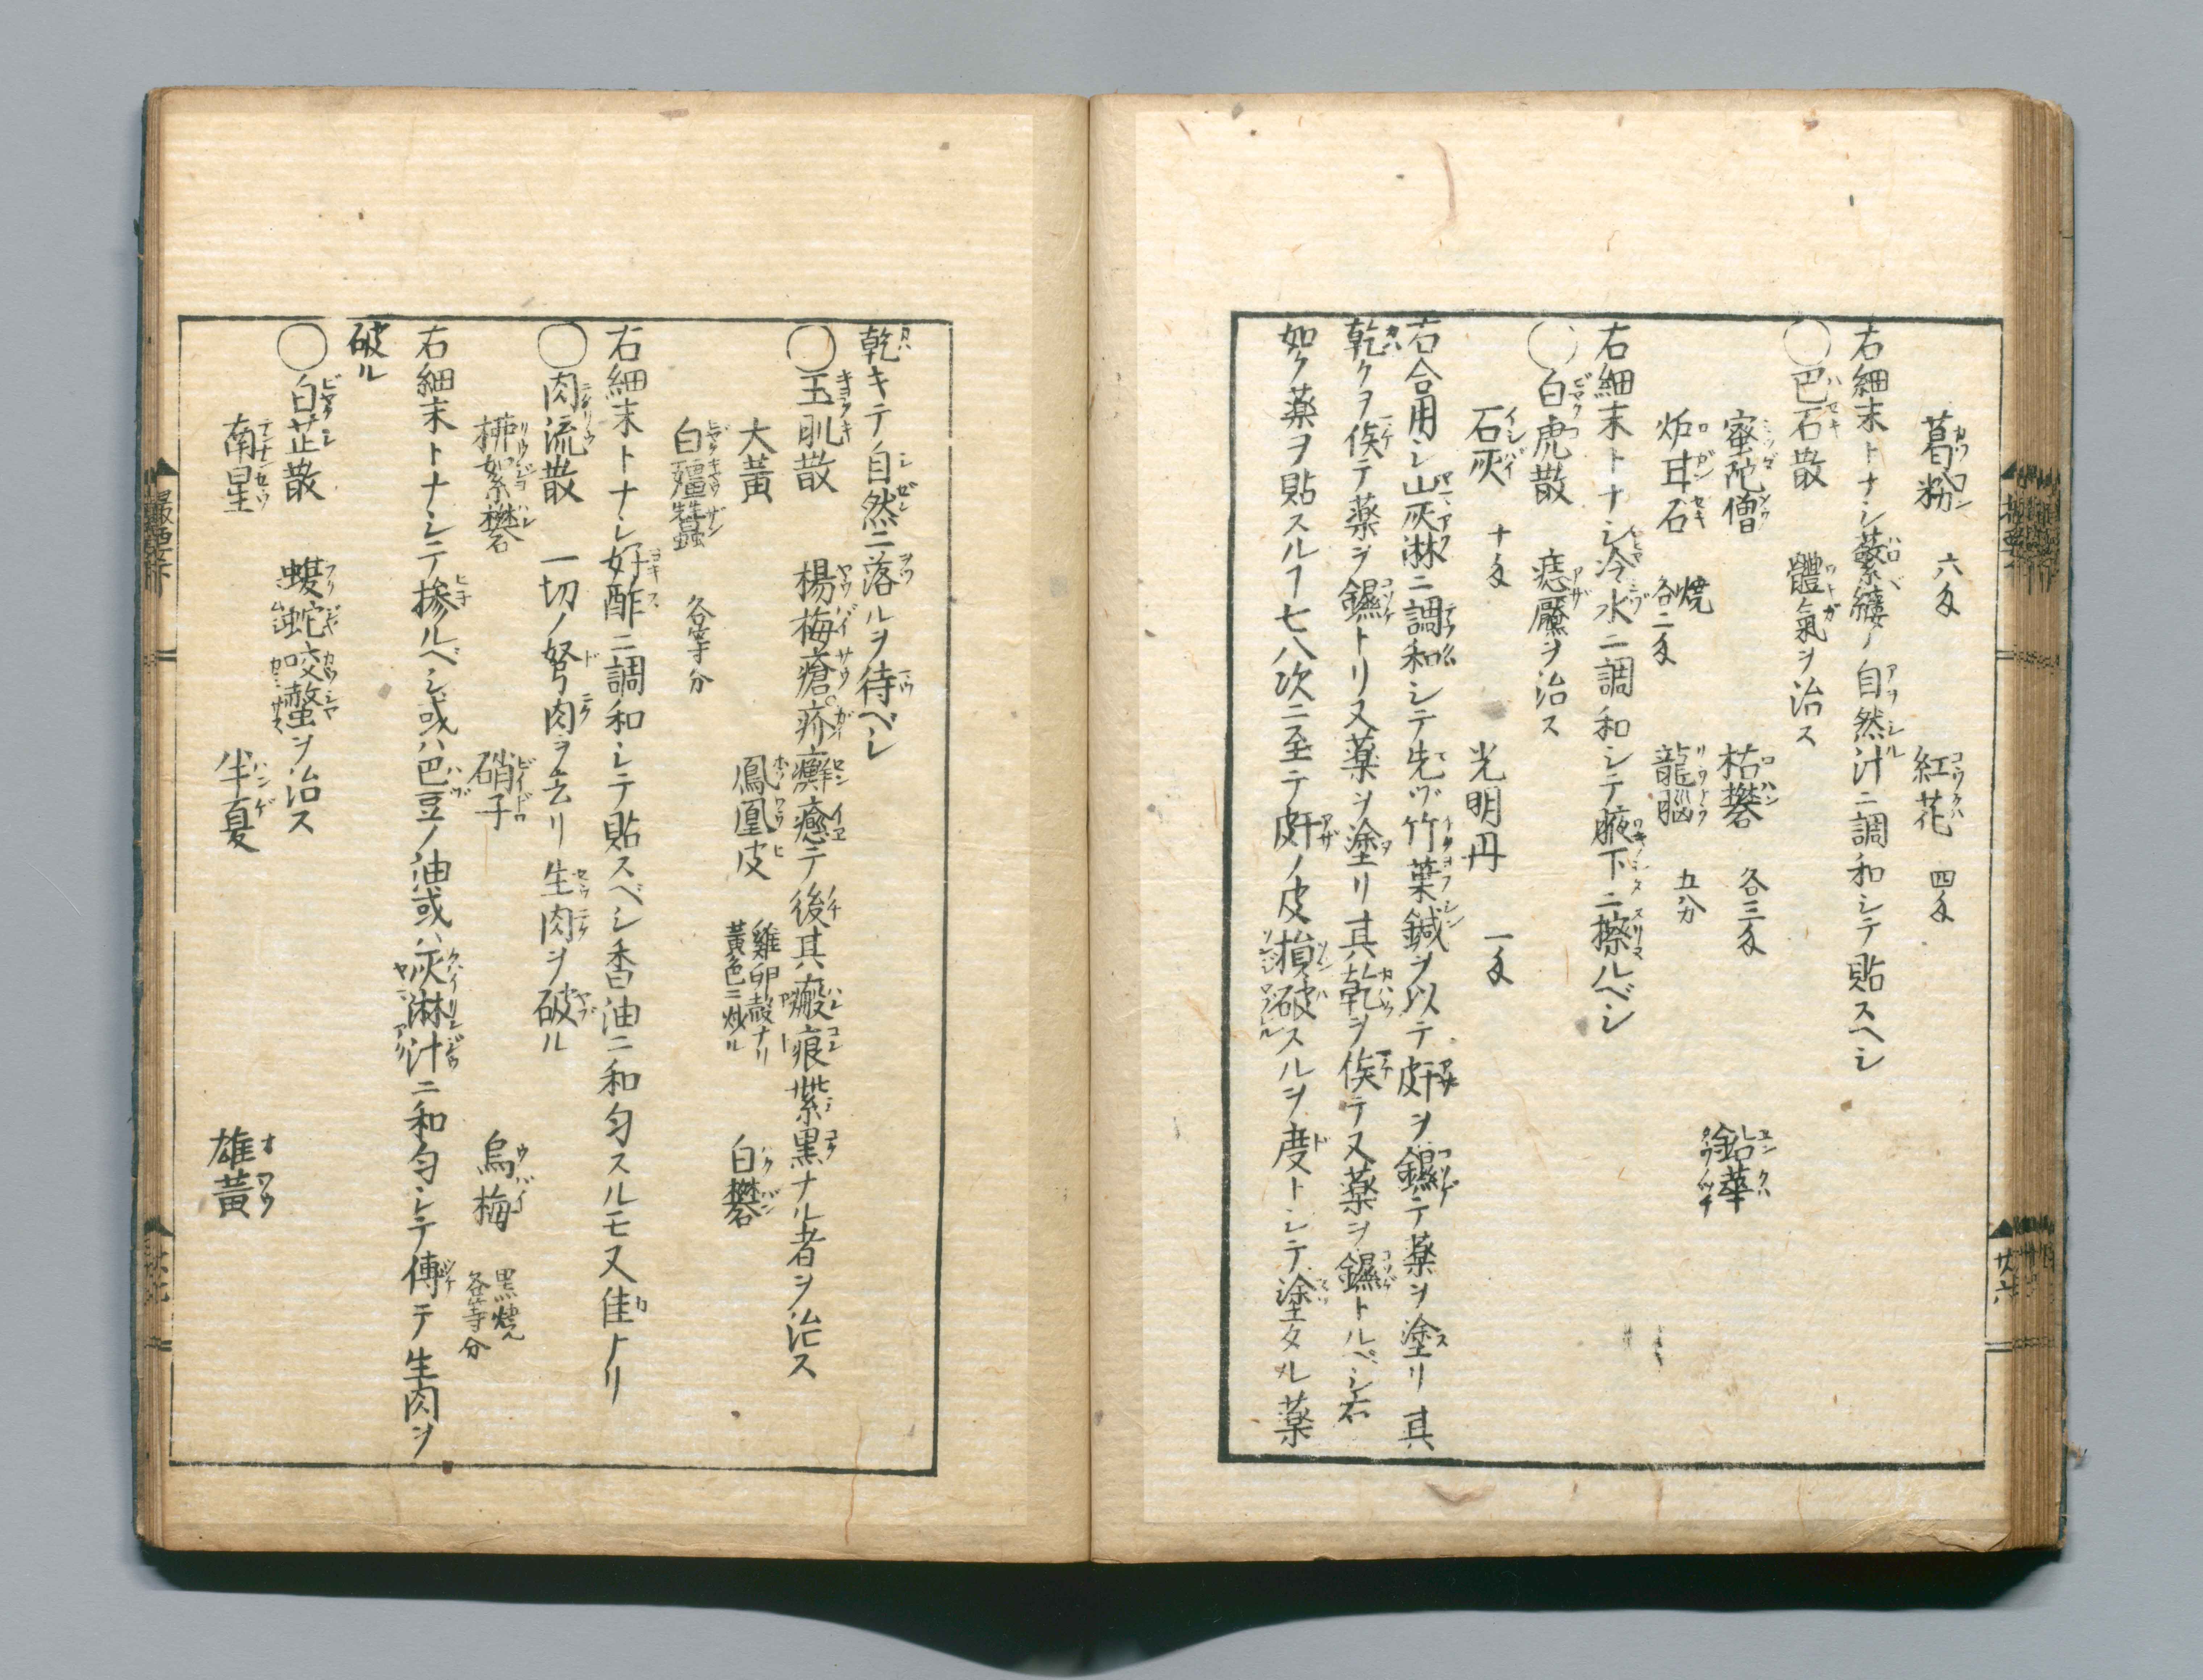 葛粉 六匁 紅花 四匁
右細末トナシ蘩縷ノ自然汁ニ調和シテ貼スヘシ
〇巴石散 體氣ヲ治ス
蜜陀僧 枯礬 各三匁 鉛華
炉耳石 焼 各二匁 龍脳 五分
右細末トナシ冷水ニ調和シテ腋下ニ擦ルベシ
〇白虎散 痣黶ヲ治ス
石灰 十匁 光明丹 一匁
右合用シ山灰淋ニ調和シテ先ヅ竹葉鍼ヲ以テ皯ヲ鑤テ薬ヲ塗リ其
乾クヲ俟テ薬ヲ鑤トリ又薬ヲ塗リ其乾ヲ俟テ又薬ヲ鑤トルベシ右
如ク薬ヲ貼スルヿ七八次ニ至テ皯ノ皮損破スルヲ度トシテ塗タル薬
乾キテ自然ニ落ルヲ待ベシ
〇玉肌散 楊梅瘡疥癬癒テ後其瘢痕紫黒ナル者ヲ治ス
大黄 鳳凰皮 雞卵殻ナリ黄色ニ炒ル 白礬
白殭蠶 各等分
右細末トナシ好酢ニ調和シテ貼スベシ香油ニ和匀スルモ又佳トリ
〇肉流散 一切ノ弩肉ヲ去リ生肉ヲ破ル
柳絮礬 硝子 烏梅 黒焼各等分
右細末トナシテ摻ルベシ或ハ巴豆ノ油或ハ灰淋汁ニ和匀シテ傅テ生肉ヲ
破ル
〇白芷散 蝮蛇咬螫ヲ治ス
南星 半夏 雄黄
廿六